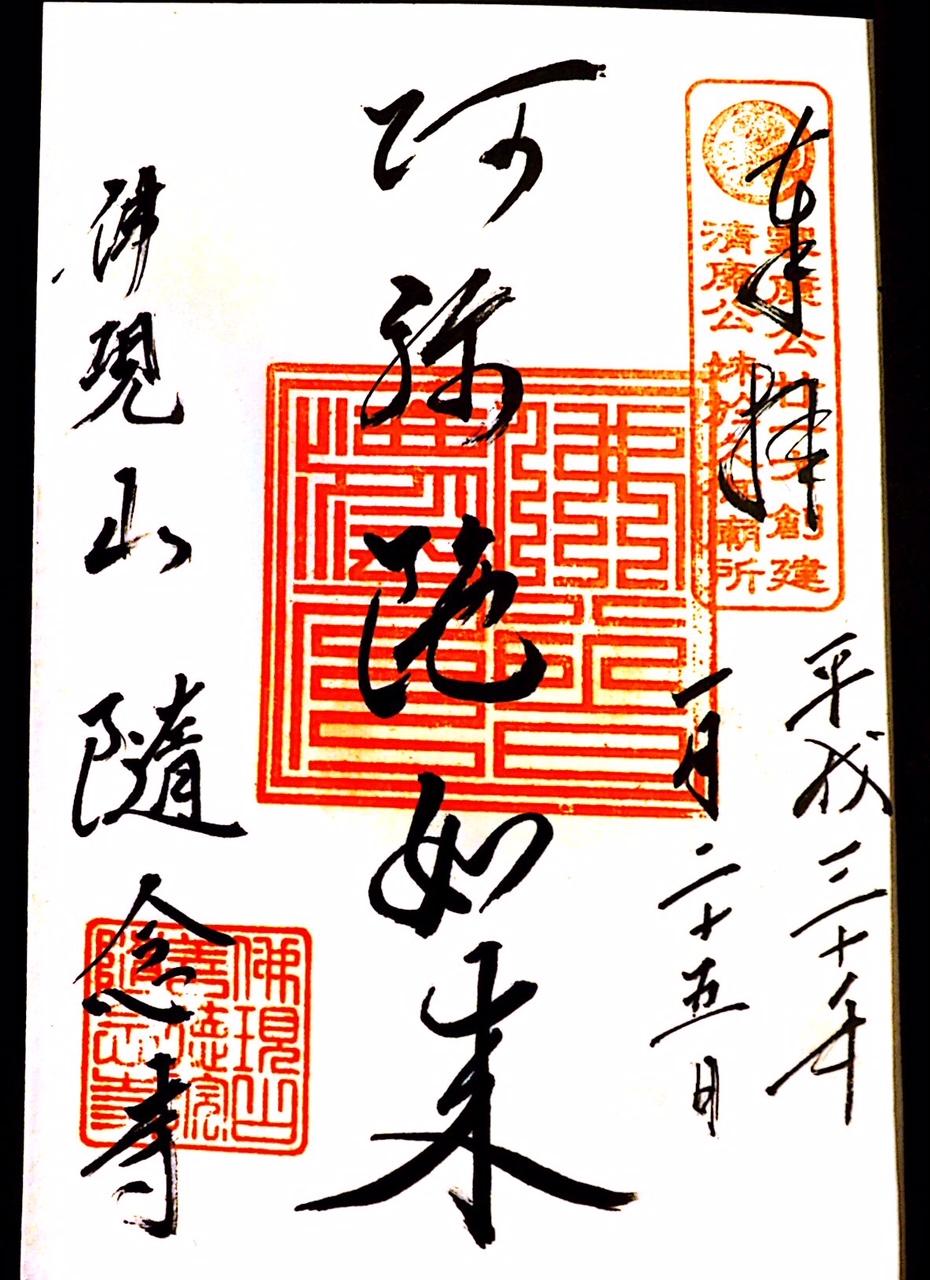 奉拝
平成三十年
一月二十五日
阿弥陀如来
佛現山 隨念寺
清康公 妹於久 廟所
創建
佛現山
善徳院
隨念寺